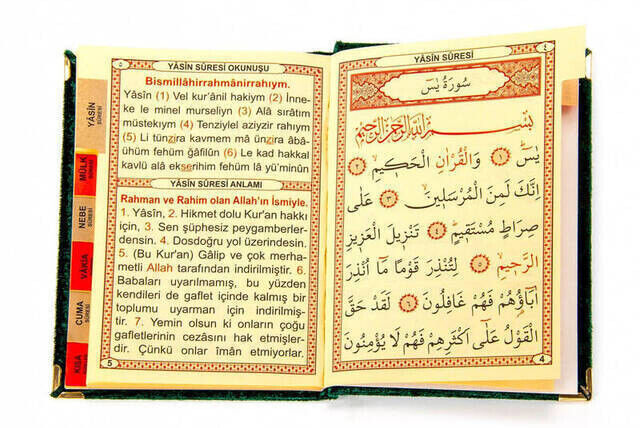 YÂSİN SÛRESİ OKUNUŞU
٥
Bismillâhirrahmânirrahıym.
Yâsîn (1) Vel kur'ânil hakiym (2) İnne-
ke le minel murseliyn (3) Alâ sırâtım
müstekıym (4) Tenziylel aziyzir rahıym
(5) Li tünzira kavmem mâ ünzira âbâ-
ühüm fehüm ğâfilûn (6) Le kad hakkal
kavlü alâ ekserihim fehüm lâ yü'minûn
YÂSİN SÛRESİ ANLAMI
Rahman ve Rahim olan Allah'ın İsmiyle.
1. Yâsîn, 2. Hikmet dolu Kur'an hakkı
için, 3. Sen şüphesiz peygamberler-
densin. 4. Dosdoğru yol üzerindesin.
5. (Bu Kur'an) Gâlip ve çok merha-
metli Allah tarafından indirilmiştir. 6.
Babaları uyarılmamış, bu yüzden
kendileri de gaflet içinde kalmış bir
toplumu uyarman için indirilmiş-
tir. 7. Yemin olsun ki onların çoğu
gafletlerinin cezasını hak etmişler-
dir. Çünkü onlar îmân etmiyorlar.
5
YÂSİN
SÛRESİ
MÜLK
SÛRESİ
NEBE
SÛRESİ
VÂKIA
CUMA
SÛRESİ
KISA
YÂSİN SÛRESİ
٤
سُورَةُ يٰسٓ
بِسْمِ اللّٰهِ الرَّحْمٰنِ الرَّحِيمِ
يٰسٓ ﴿١﴾ وَالْقُرْاٰنِ الْحَكِيمِ ﴿٢﴾
اِنَّكَ لَمِنَ الْمُرْسَلِينَ ﴿٣﴾ عَلٰى
صِرَاطٍ مُسْتَقِيمٍ ﴿٤﴾ تَنْزِيلَ الْعَزِيزِ
الرَّحِيمِ ﴿٥﴾ لِتُنْذِرَ قَوْمًا مَٓا اُنْذِرَ
اٰبَٓاؤُ۬هُمْ فَهُمْ غَافِلُونَ ﴿٦﴾ لَقَدْ حَقَّ
الْقَوْلُ عَلٰٓى اَكْثَرِهِمْ فَهُمْ لَا يُؤْمِنُونَ
4